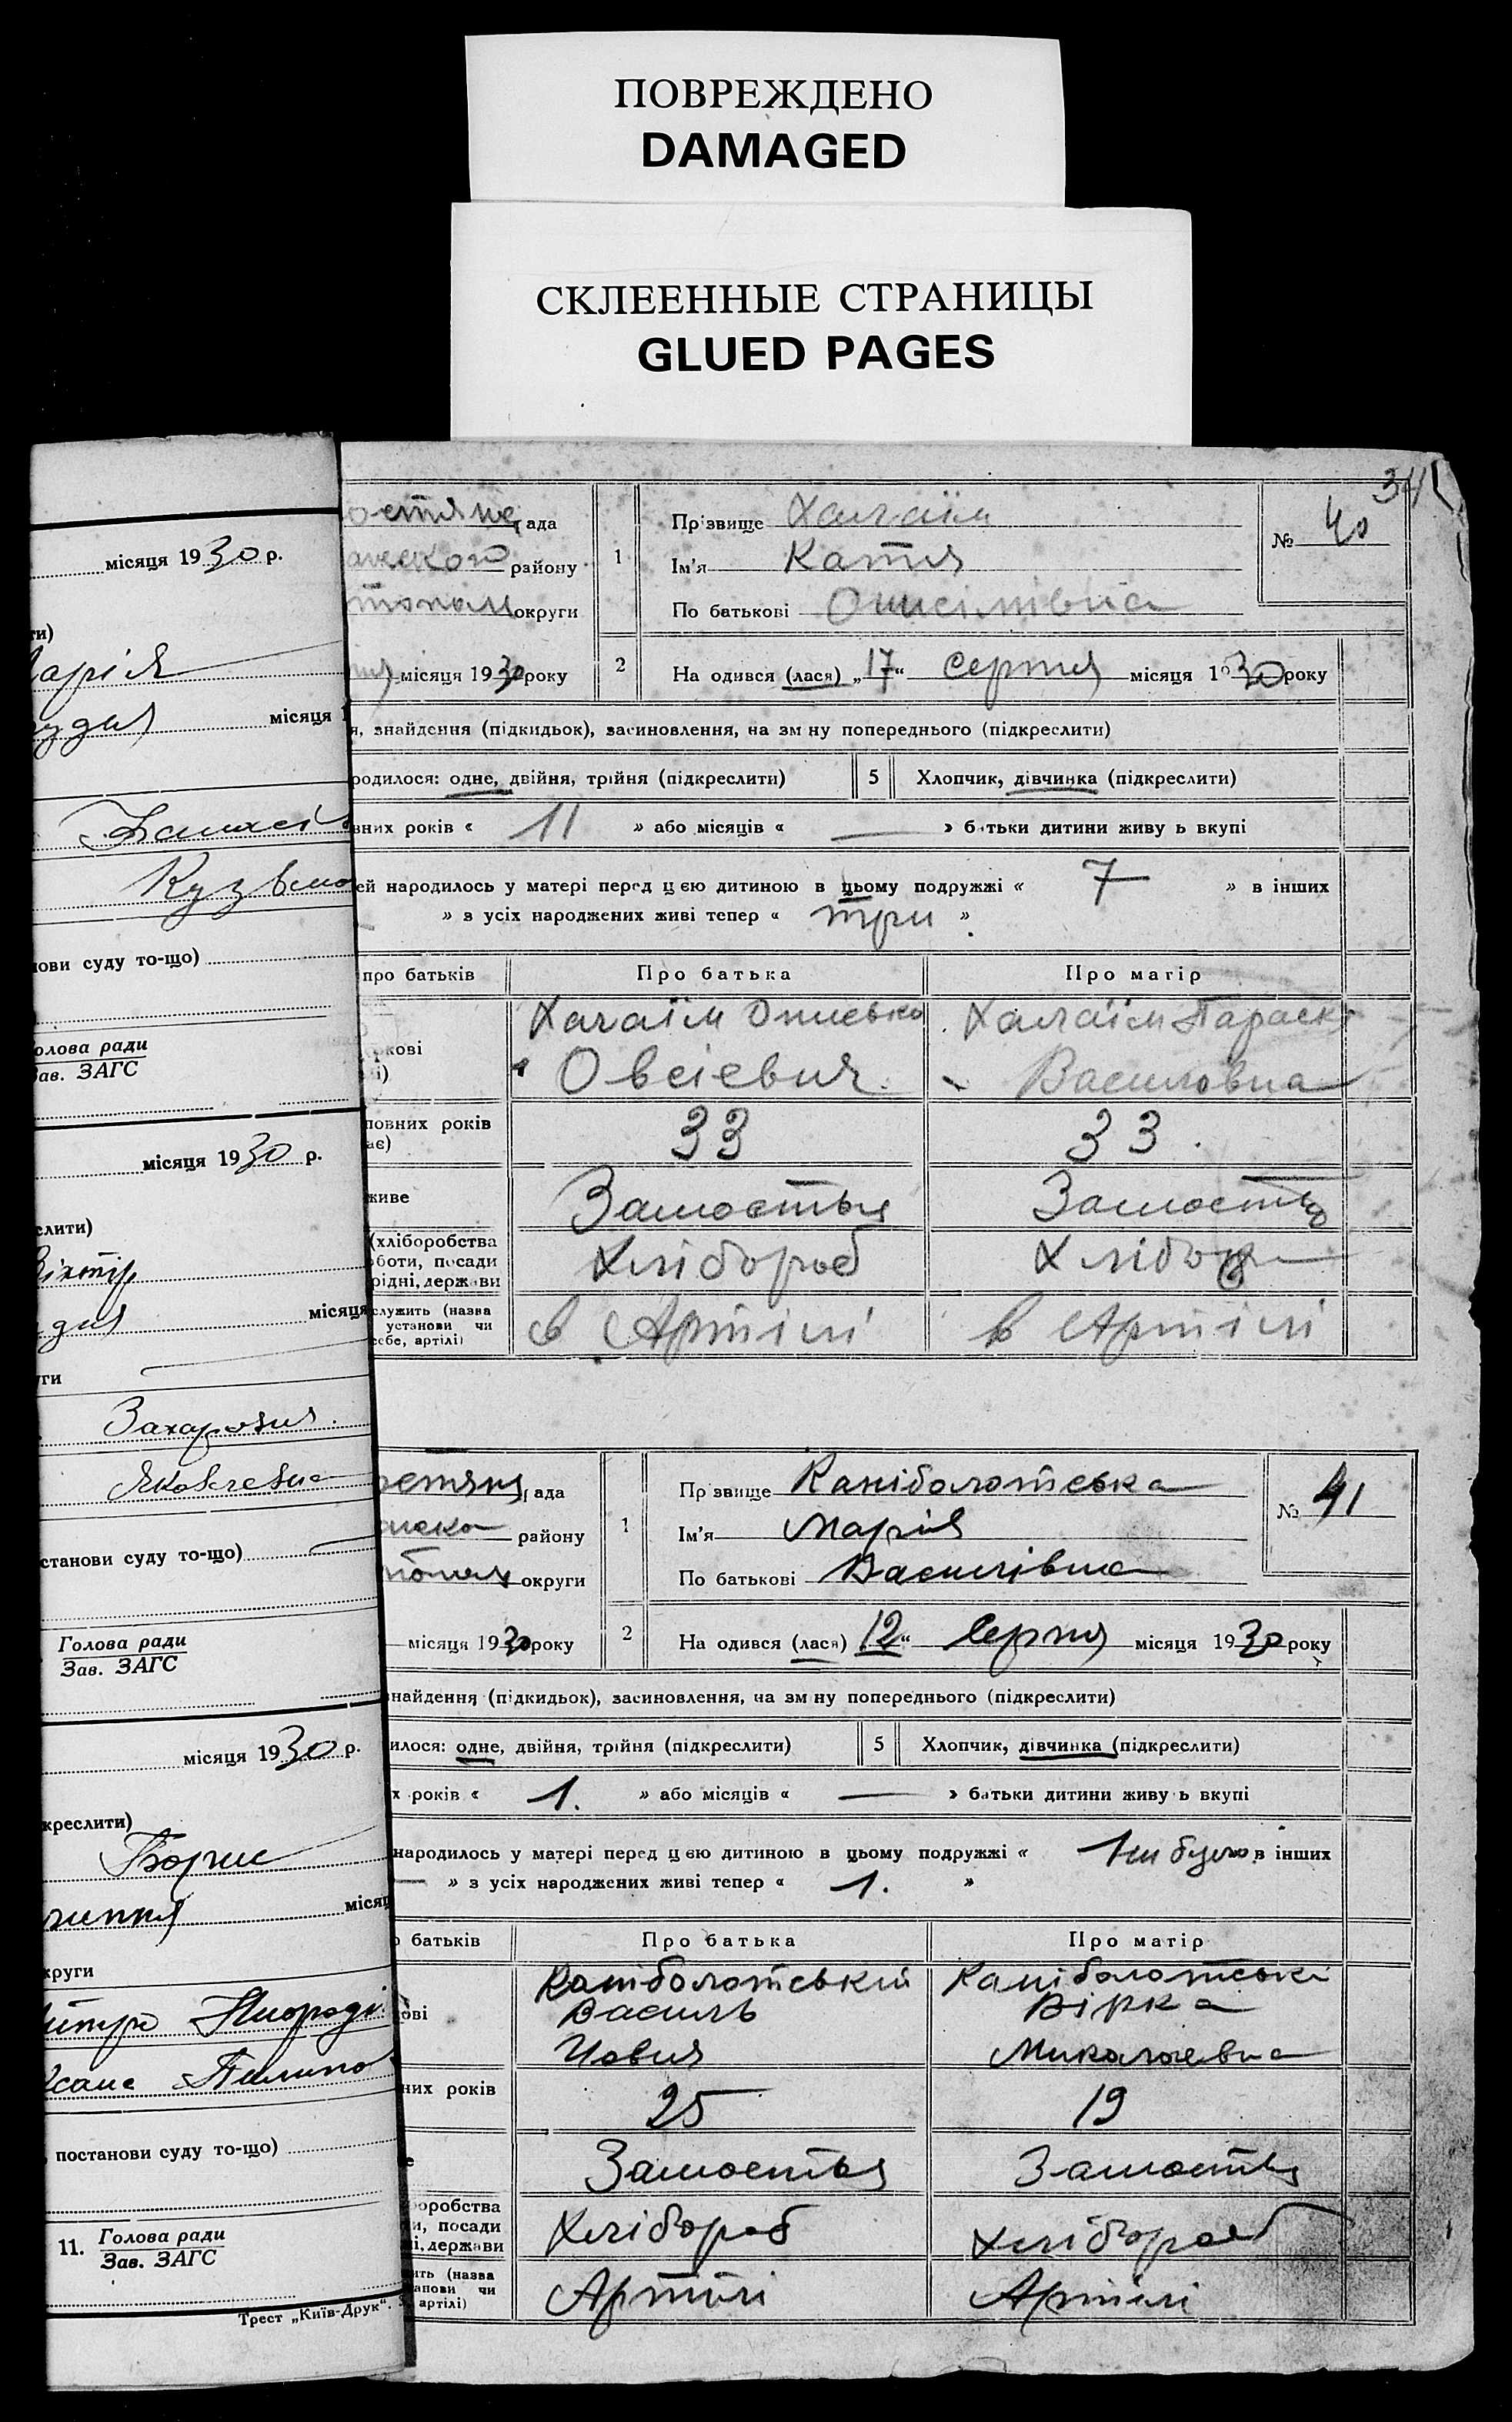 ПОВРЕЖДЕНО
DAMAGED
СКЛЕЕННЫЕ СТРАНИЦЫ
GLUED PAGES
місяця 1930 р.
ти)
арія
місяця 1
Кузьмо
нови суду то-що)
олова ради
Зав. ЗАГС
місяця 1930 р.
слити)
Віктір
місяця
ги
Захарович
Яковлевна
станови суду то-що)
Голова ради
Зав. ЗАГС
місяця 1930 р.
креслити)
Борис
місяц
круги
постанови суду то-що)
11. Голова ради
Зав. ЗАГС
Трест „Київ-Друк".
34
ада
району
округи
місяця 1930 року
1
Пр звище Халаїм
Ім'я Катя
По батькові Онисімівна
№ 40
2
На одився (лася) „17" Серпня місяця 1930 року
я, знайдення (підкидьок), засиновлення, на зм ну попереднього (підкреслити)
родилося: одне, двійня, трійня (підкреслити)
5
Хлопчик, дівчинка (підкреслити)
вних років « 11 » або місяців « — » батьки дитини живу ь вкупі
ей народилось у матері перед ц єю дитиною в цьому подружжі « 7 » в інших
» з усіх народжених живі тепер « три »
про батьків
Про батька
Про матір
ркові
і)
Халаїм Онисько
Овсієвич
Халаїм Параск
Василовна
повних років
ає)
33
33.
живе
Замостья
Замостья
(хліборобства
боти, посади
рідні, держави
Хлібороб
служить (назва
установи чи
себе, артілі)
в Артілі
в Артілі
ада
району
округи
місяця 1930 року
1
Пр звище Каніболотська
Ім'я Марія
По батькові Василівна
№ 41
2
На одився (лася) 12" Серпня місяця 1930 року
найдення (підкидьок), засиновлення, на зм ну попереднього (підкреслити)
илося: одне, двійня, трійня (підкреслити)
5
Хлопчик, дівчинка (підкреслити)
х років « 1. » або місяців « — » батьки дитини живу ь вкупі
народилось у матері перед ц єю дитиною в цьому подружжі « в інших
— » з усіх народжених живі тепер « 1. »
о батьків
Про батька
Про матір
ові
Каніболотський
Василь
Каніболотські
Вірка
Миколаевна
них років
25
19
е
Замостья
Замостья
оробства
и, посади
і, держави
Хлібороб
Хлібороб
ить (назва
анови чи
артілі)
Артілі
Артілі